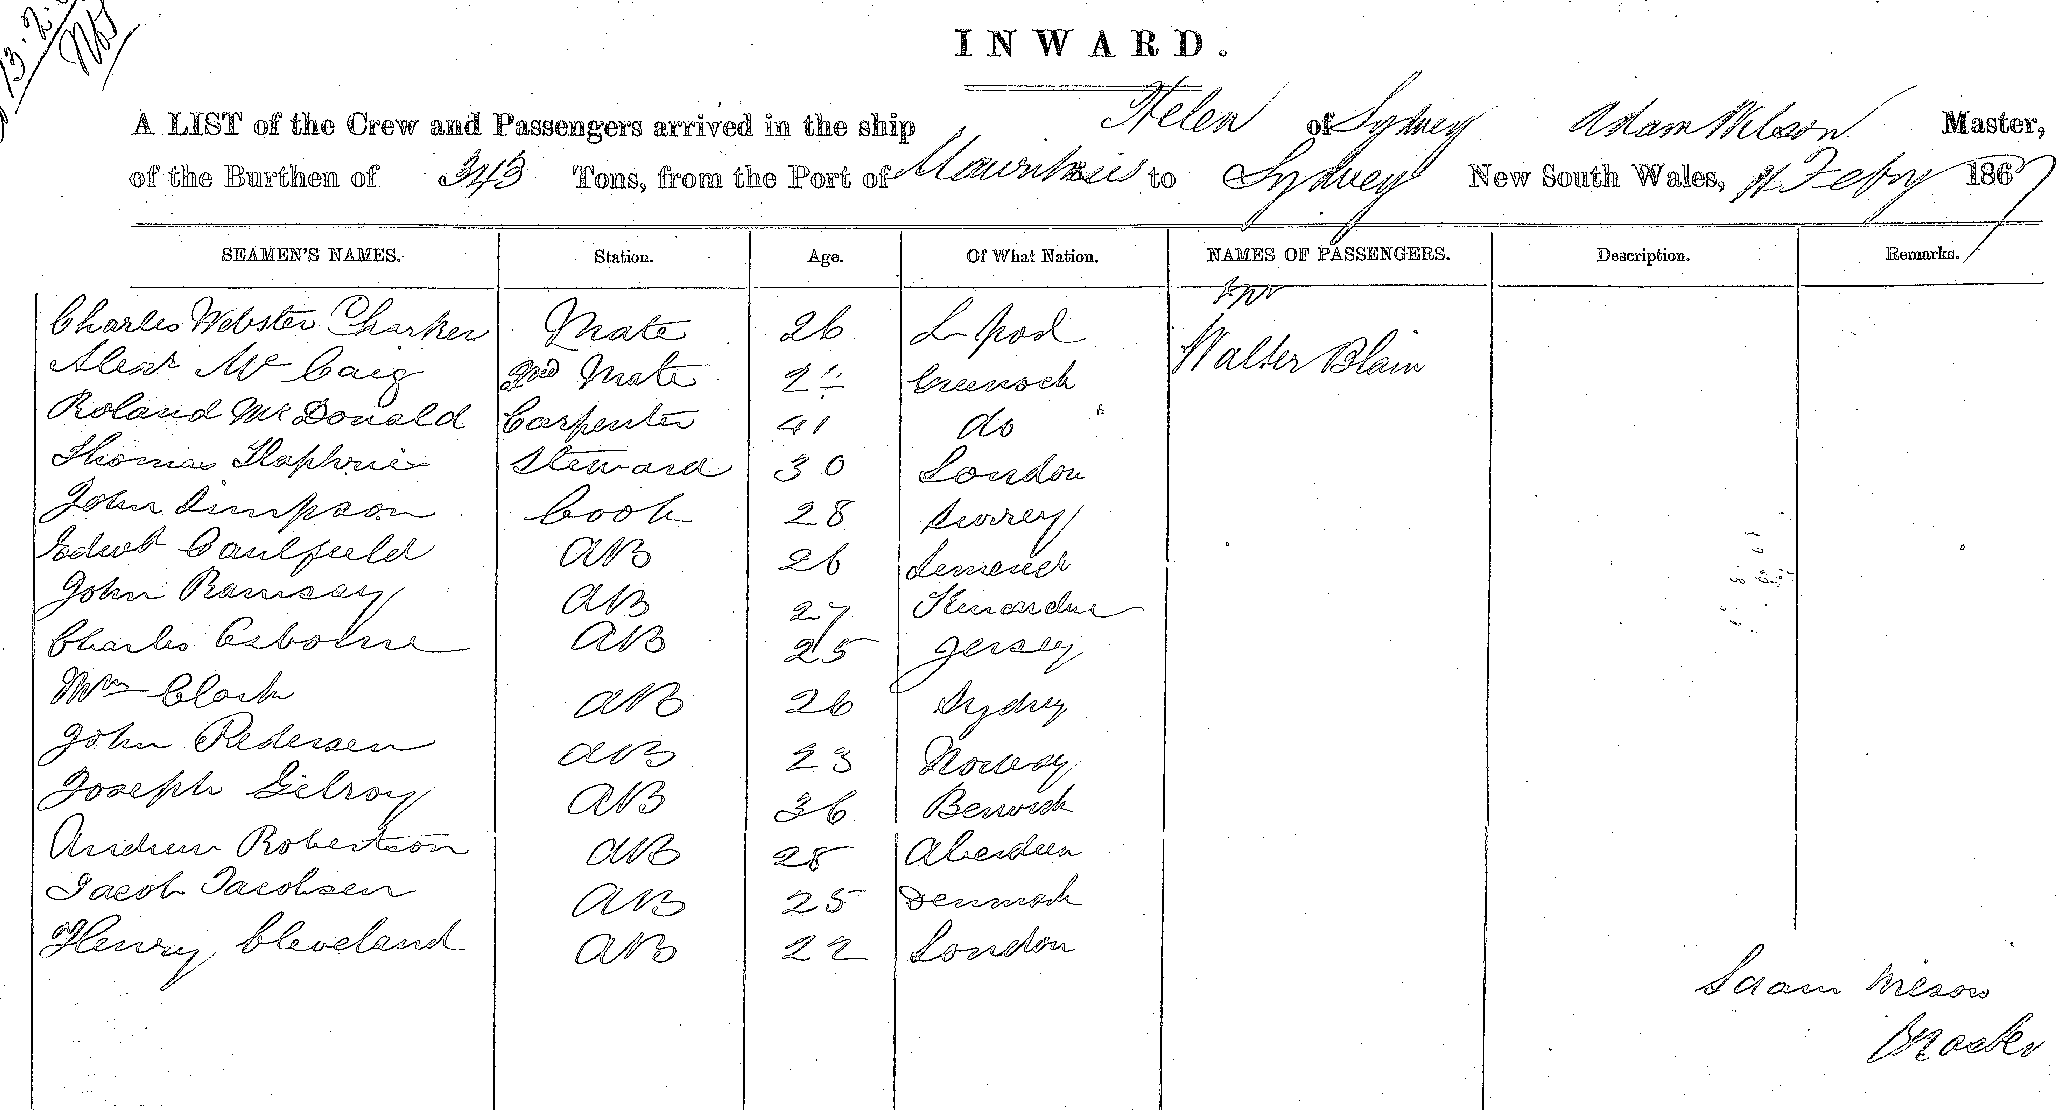 INWARD.
A LIST of the Crew and Passengers arrived in the ship Helen of Sydney Adam Wilson Master,
of the Burthen of 343 Tons, from the Port of Mauritius to Sydney New South Wales, Feby 1867
SEAMEN'S NAMES. Station. Age. Of What Nation. NAMES OF PASSENGERS. Description. Remarks.
Charles Webster Charker Mate 26 L pool
Walter Blain
Alexr Mc Caig 2nd Mate Greenock
Roland McDonald Carpenter 41 do
Thomas Steward 30 London
John Simpson Cook 28 Surrey
Edwd Caulfield AB 26 Limerick
John Ramsay AB 27 Kincardine
Charles Osborne AB 25 Jersey
Wm Clark AB 26 Sydney
John Pedersen AB 23 Norway
Joseph Gilroy AB 36 Berwick
Andrew Robertson AB 28 Aberdeen
Jacob Jacobsen AB 25 Denmark
Henry Cleveland AB 22 London
Adam Wilson
Master